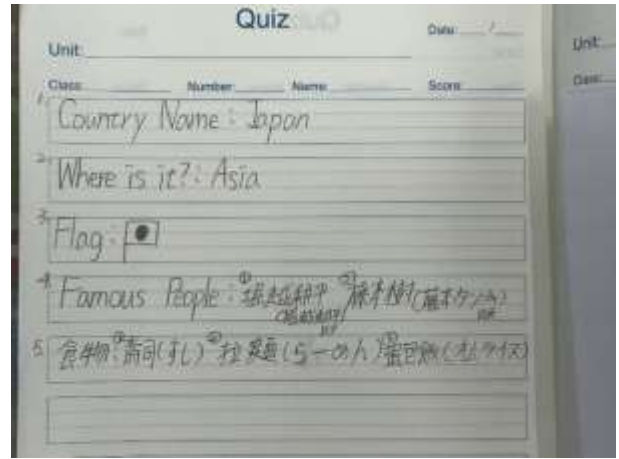 Quiz
Date: /
Unit:
Unit:
Class: Number: Name: Score:
1. Country Name: Japan
2. Where is it?: Asia
3. Flag:
4. Famous People: ① ②
5. 食物:①壽司(すし)②拉麵(らーめん)③蛋包飯(オムライス)